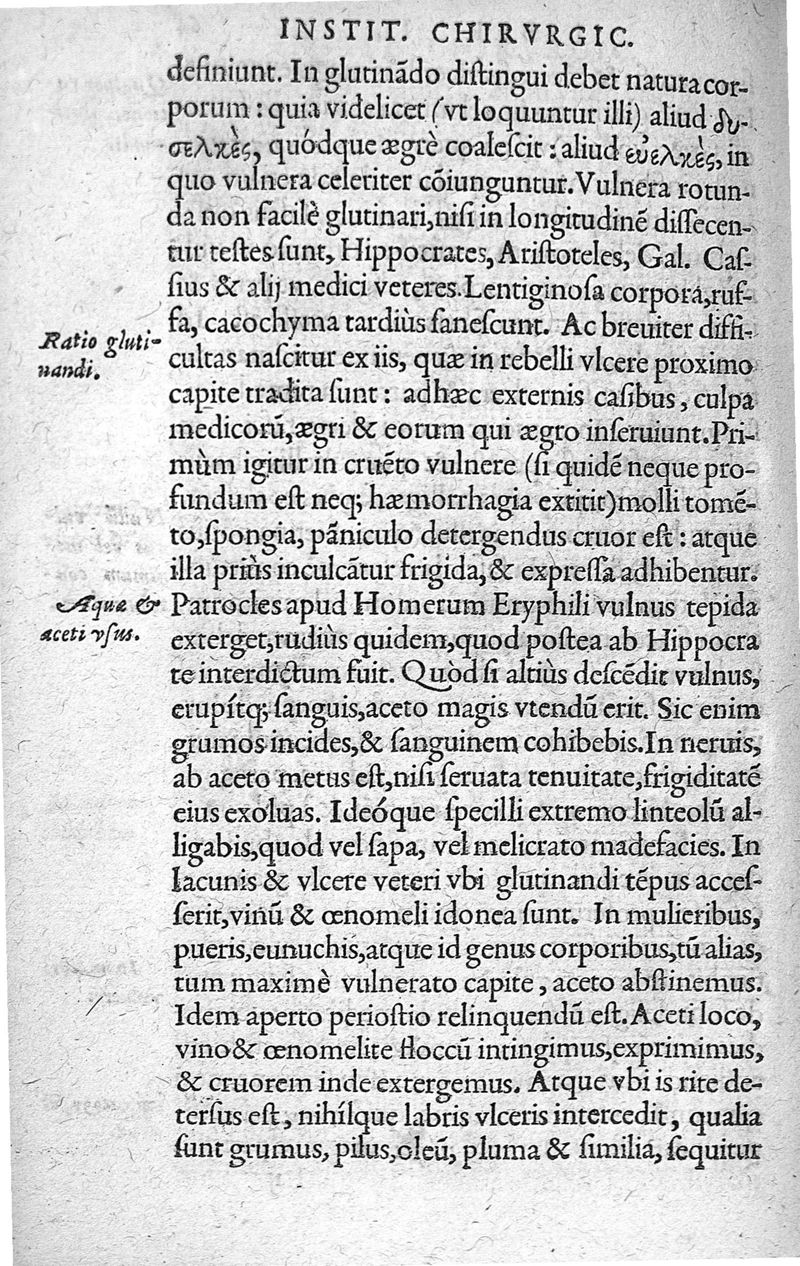 INSTIT. CHIRVRGIC.
definiunt. In glutinãdo distingui debet natura cor-
porum : quia videlicet (vt loquuntur illi) aliud δυ-
σελκὲς, quódque ægrè coalescit : aliud εὐελκὲς, in
quo vulnera celeriter cõiunguntur. Vulnera rotun-
da non facilè glutinari, nisi in longitudinẽ dissecen-
tur testes sunt, Hippocrates, Aristoteles, Gal. Cas-
sius & alij medici veteres. Lentiginosa corpora, ruf-
fa, cacochyma tardiùs sanescunt. Ac breuiter diffi-
Ratio gluti-
nandi.
cultas nascitur ex iis, quæ in rebelli vlcere proximo
capite tradita sunt : adhæc externis casibus, culpa
medicorũ, ægri & eorum qui ægro inseruiunt. Pri-
mùm igitur in cruẽto vulnere (si quidẽ neque pro-
fundum est neq; hæmorrhagia extitit) molli tomẽ-
to, spongia, pãniculo detergendus cruor est : atque
illa priùs inculcãtur frigida, & expressa adhibentur.
Aquæ &
aceti vsus.
Patrocles apud Homerum Eryphili vulnus tepida
exterget, rudiùs quidem, quod postea ab Hippocra
te interdictum fuit. Quòd si altiùs descẽdit vulnus,
erupítq; sanguis, aceto magis vtendũ erit. Sic enim
grumos incides, & sanguinem cohibebis. In neruis,
ab aceto metus est, nisi seruata tenuitate, frigiditatẽ
eius exoluas. Ideóque specilli extremo linteolũ al-
ligabis, quod vel sapa, vel melicrato madefacies. In
lacunis & vlcere veteri vbi glutinandi tẽpus acces-
serit, vinũ & œnomeli idonea sunt. In mulieribus,
pueris, eunuchis, atque id genus corporibus, tũ alias,
tum maximè vulnerato capite, aceto abstinemus.
Idem aperto periostio relinquendũ est. Aceti loco,
vino & œnomelite floccũ intingimus, exprimimus,
& cruorem inde extergemus. Atque vbi is rite de-
tersus est, nihílque labris vlceris intercedit, qualia
sunt grumus, pilus, oleũ, pluma & similia, sequitur